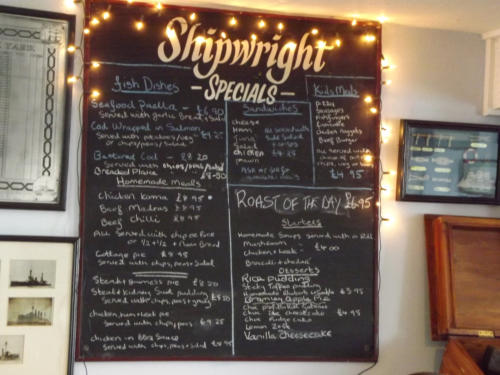 Shipwright
- SPECIALS -
Fish Dishes
Seafood Paella - £6.90
Served with garlic Bread + Salad
Cod Wrapped in Salmon
Served with potatoes/veg
or chips/peas/salad
Battered Cod - £8.20
Served with chips/peas/salad
Breaded Plaice £8.50
Homemade Meals
Chicken korma £8.95
Beef Madras £8.95
Beef Chilli £8.95
All Served with chip or Rice
or 1/2 + 1/2 + Naan Bread
Cottage pie £8.95
Served with chips, peas + Salad
Steak + Guinness pie £8.20
Steak + Kidney Suet pudding
Served with chips, peas + gravy
chicken, ham + leek pie
Served with chips, peas £9.25
chicken in BBQ Sauce
Served with chips, peas + Salad £8.95
Sandwiches
cheese
Ham
Tuna
Salad
chicken
prawn
All served with
side salad
Kids Meals
pizza
Sausages
Fishfingers
chicken nuggets
Beef Burger
All served with
£4.95
ROAST OF THE DAY £6.95
Starters
Homemade Soups served with a Roll
Mushroom
£4.00
Chicken + leek
Broccoli + cheddar
Desserts
Rice Pudding
Sticky Toffee pudding
Homemade Rhubarb crumble £3.95
Bramley Apple Pie
Choc fudge cake
Lemon
Vanilla Cheesecake
£4.95